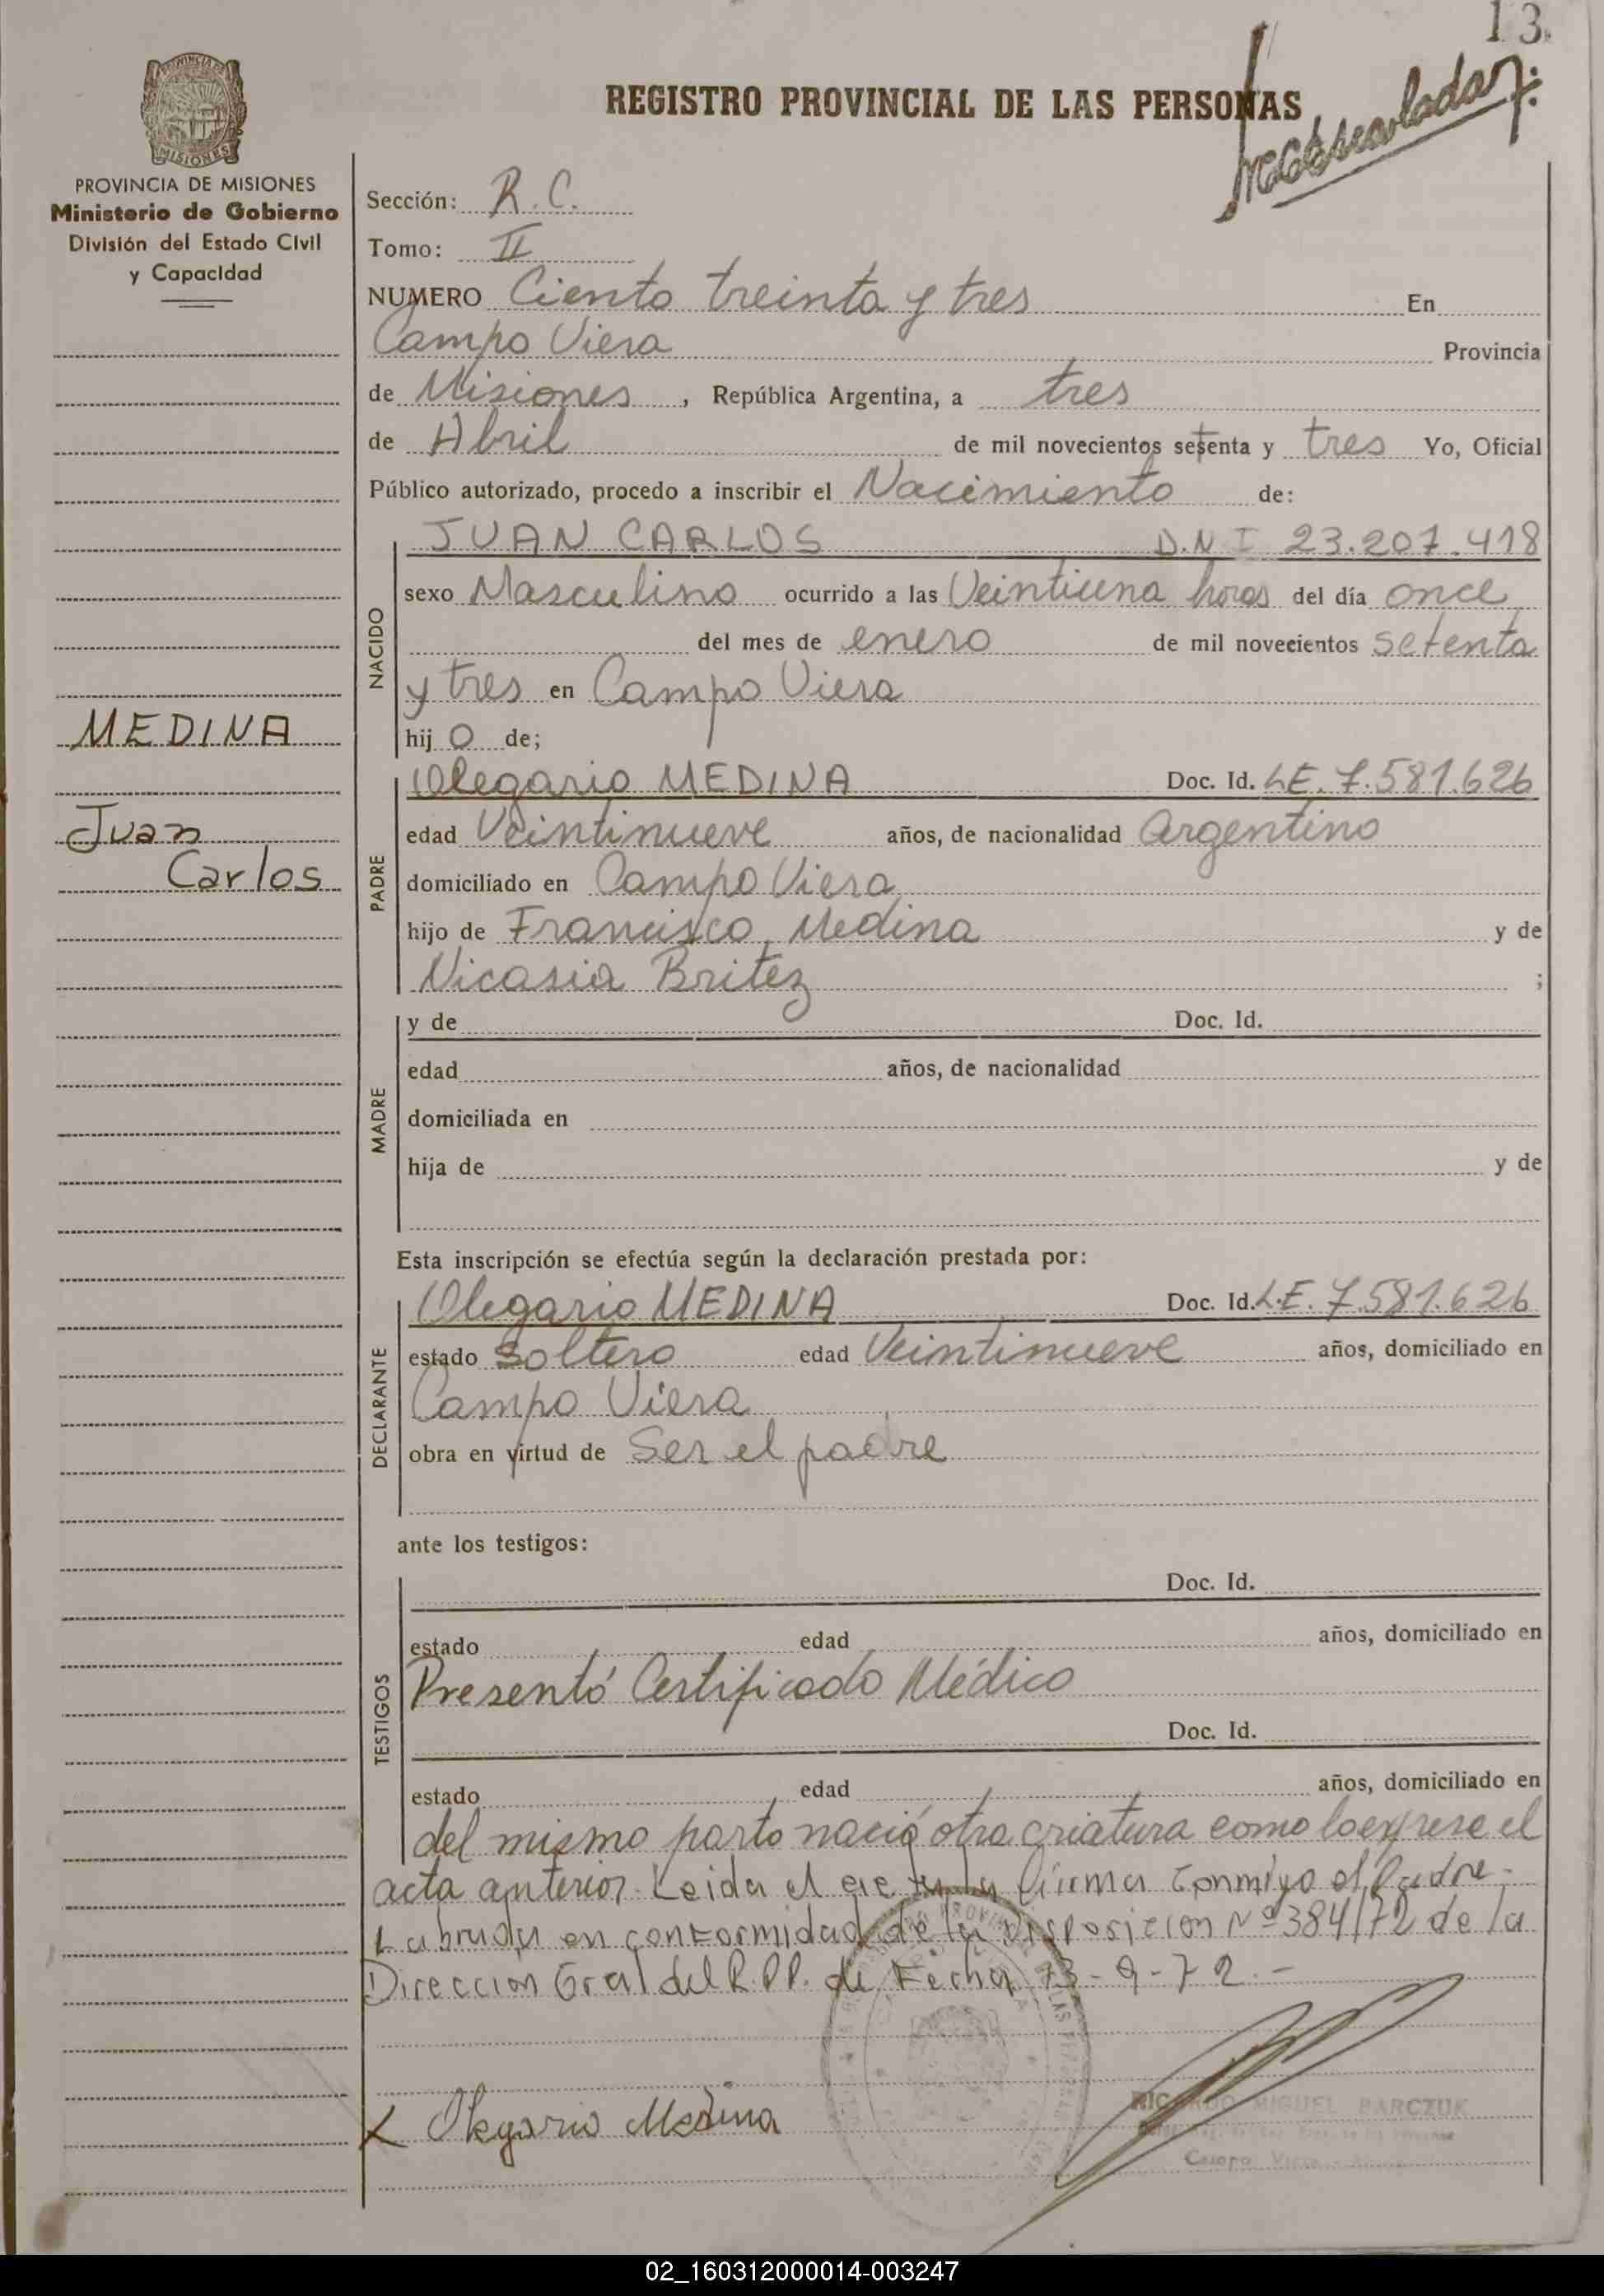 13.
REGISTRO PROVINCIAL DE LAS PERSONAS
PROVINCIA DE MISIONES
MISIONES
PROVINCIA DE MISIONES
Ministerio de Gobierno
División del Estado Civil
y Capacidad
Sección: R.C.
Tomo: II
NUMERO Ciento treinta y tres En
Campo Viera Provincia
de Misiones, República Argentina, a tres
de Abril de mil novecientos setenta y tres Yo, Oficial
Público autorizado, procedo a inscribir el Nacimiento de:
NACIDO
JUAN CARLOS D.N.I 23.207.418
sexo Masculino ocurrido a las Veintiuna horas del día once
del mes de enero de mil novecientos setenta
y tres en Campo Viera
hijo de;
MEDINA
Juan
Carlos
PADRE
Olegario MEDINA Doc. Id. L.E. 7.581.626
edad Veintinueve años, de nacionalidad Argentino
domiciliado en Campo Viera
hijo de Francisco Medina y de
Nicasia Britez ;
MADRE
y de Doc. Id.
edad años, de nacionalidad
domiciliada en
hija de y de
Esta inscripción se efectúa según la declaración prestada por:
DECLARANTE
Olegario MEDINA Doc. Id. L.E. 7.581.626
estado Soltero edad Veintinueve años, domiciliado en
Campo Viera
obra en virtud de Ser el padre
ante los testigos:
TESTIGOS
Doc. Id.
estado edad años, domiciliado en
Presentó Certificado Médico
Doc. Id.
estado edad años, domiciliado en
del mismo parto nació otra criatura como lo exprese el
acta anterior. Leida el acta la firma conmigo el Padre.
Labrada en conformidad de la Disposicion Nº 384/72 de la
Direccion Gral del R.P.P. de Fecha 13-9-72.-
X Olegario Medina
RICARDO MIGUEL BARCZUK
Campo Viera
02_160312000014-003247